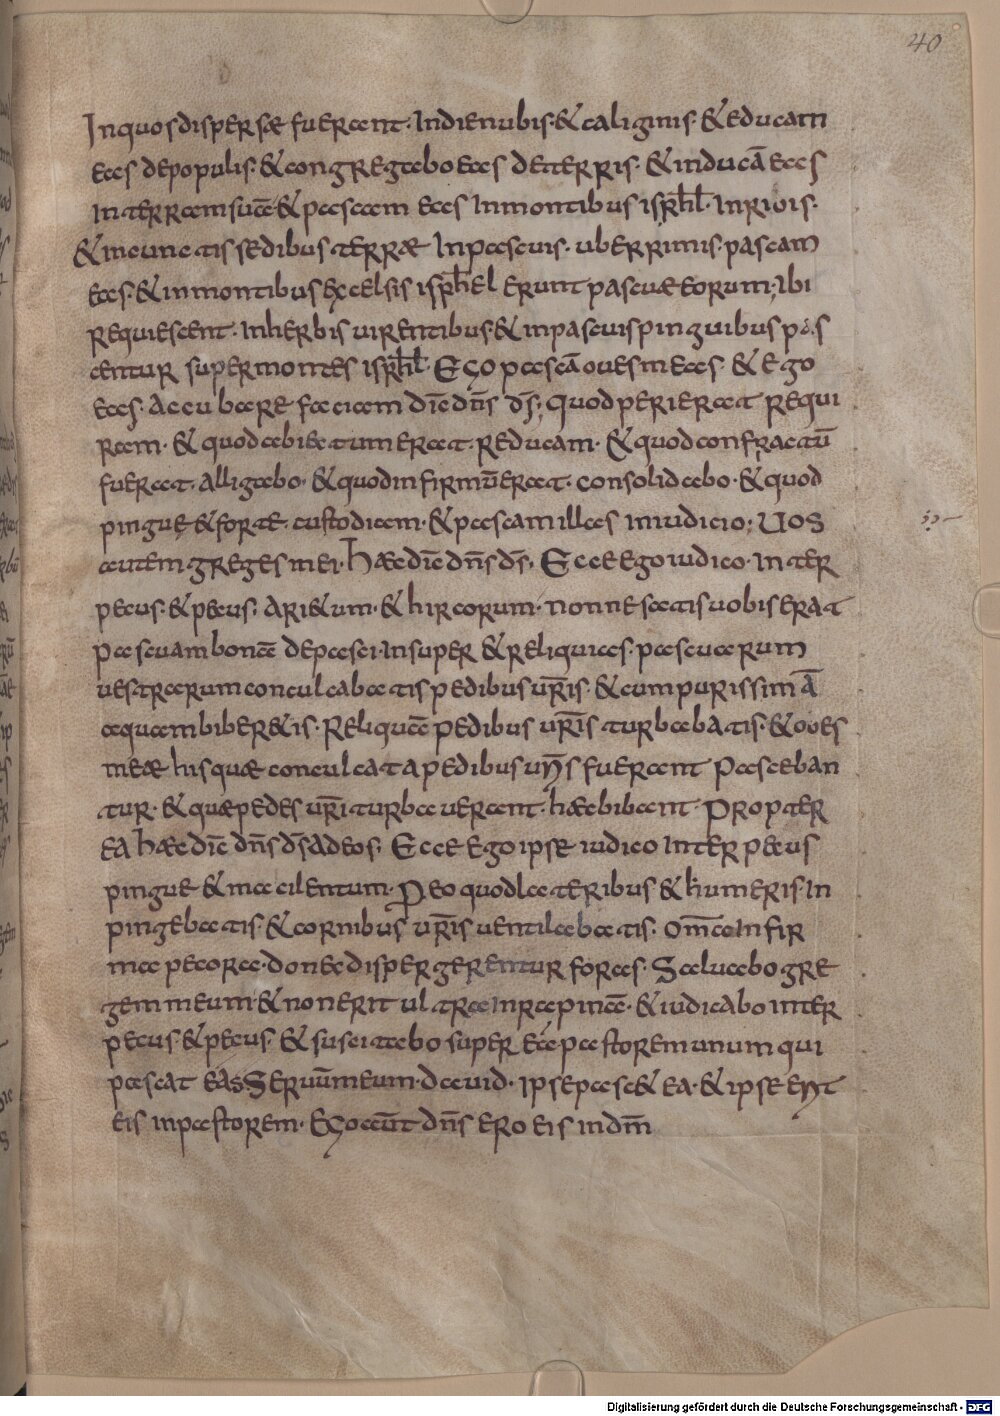 40
In quos dispersae fuerant. In die nubis & caliginis. & educam
eas de populis. & congregabo eas de terris. & inducā eas
in terram suā & pascam eas in montibus isrhl. In rivis.
& in cunctis sedibus terrae In pascuis. uberrimis. pascam
eas. & in montibus excelsis isrhel erunt pascuae eorum; Ibi
requiescent. In herbis uirentibus & in pascuis pinguibus pas
centur super montes isrhl. Ego pascā oues meas. & ego
eas. accubare faciam dic̄ dn̄s ds̄; quod perierat requi
ram. & quod abiectum erat. reducam. & quod confractū
fuerat. alligabo. & quod infirmū erat. consolidabo. & quod
pingue & forte. custodiam. & pascam illas in iudicio; Uos
autem greges mei. haec dic̄ dn̄s ds̄. Ecce ego iudico. Inter
pecus. & pecus. ari&um. & hircorum. nonne satis uobis erat
pascuam bonā depasci. Insuper & reliquias. pascuarum
uestrarum conculcabatis pedibus ur̄is. & cum purissimā
aquam biber&is. Reliquā pedibus ur̄is turbabatis. & oues
meae his quae conculcata pedibus ur̄is fuerant Pasceban
tur. & quae pedes ur̄i turbauerant. haec bibeant. Propter
ea haec dic̄ dn̄s ds̄ ad eos. Ecce ego ipse iudico Inter pecus
pingue & macilentum. Pro eo quod lateribus & humeris. In
pingebatis. & cornibus ur̄is uentilabatis. Om̄a Infir
ma pecora. donec dispergerentur foras. Saluabo gre
gem meum & non erit ultra In rapinā. & iudicabo inter
pecus. & pecus. & suscitabo super eā pastorem unum qui
pascat eas Seruūm meum. dauid. Ipse pasc& ea. & ipse erit
eis in pastorem. Ego aūt dn̄s ero eis in dm̄
Digitalisierung gefördert durch die Deutsche Forschungsgemeinschaft - DFG